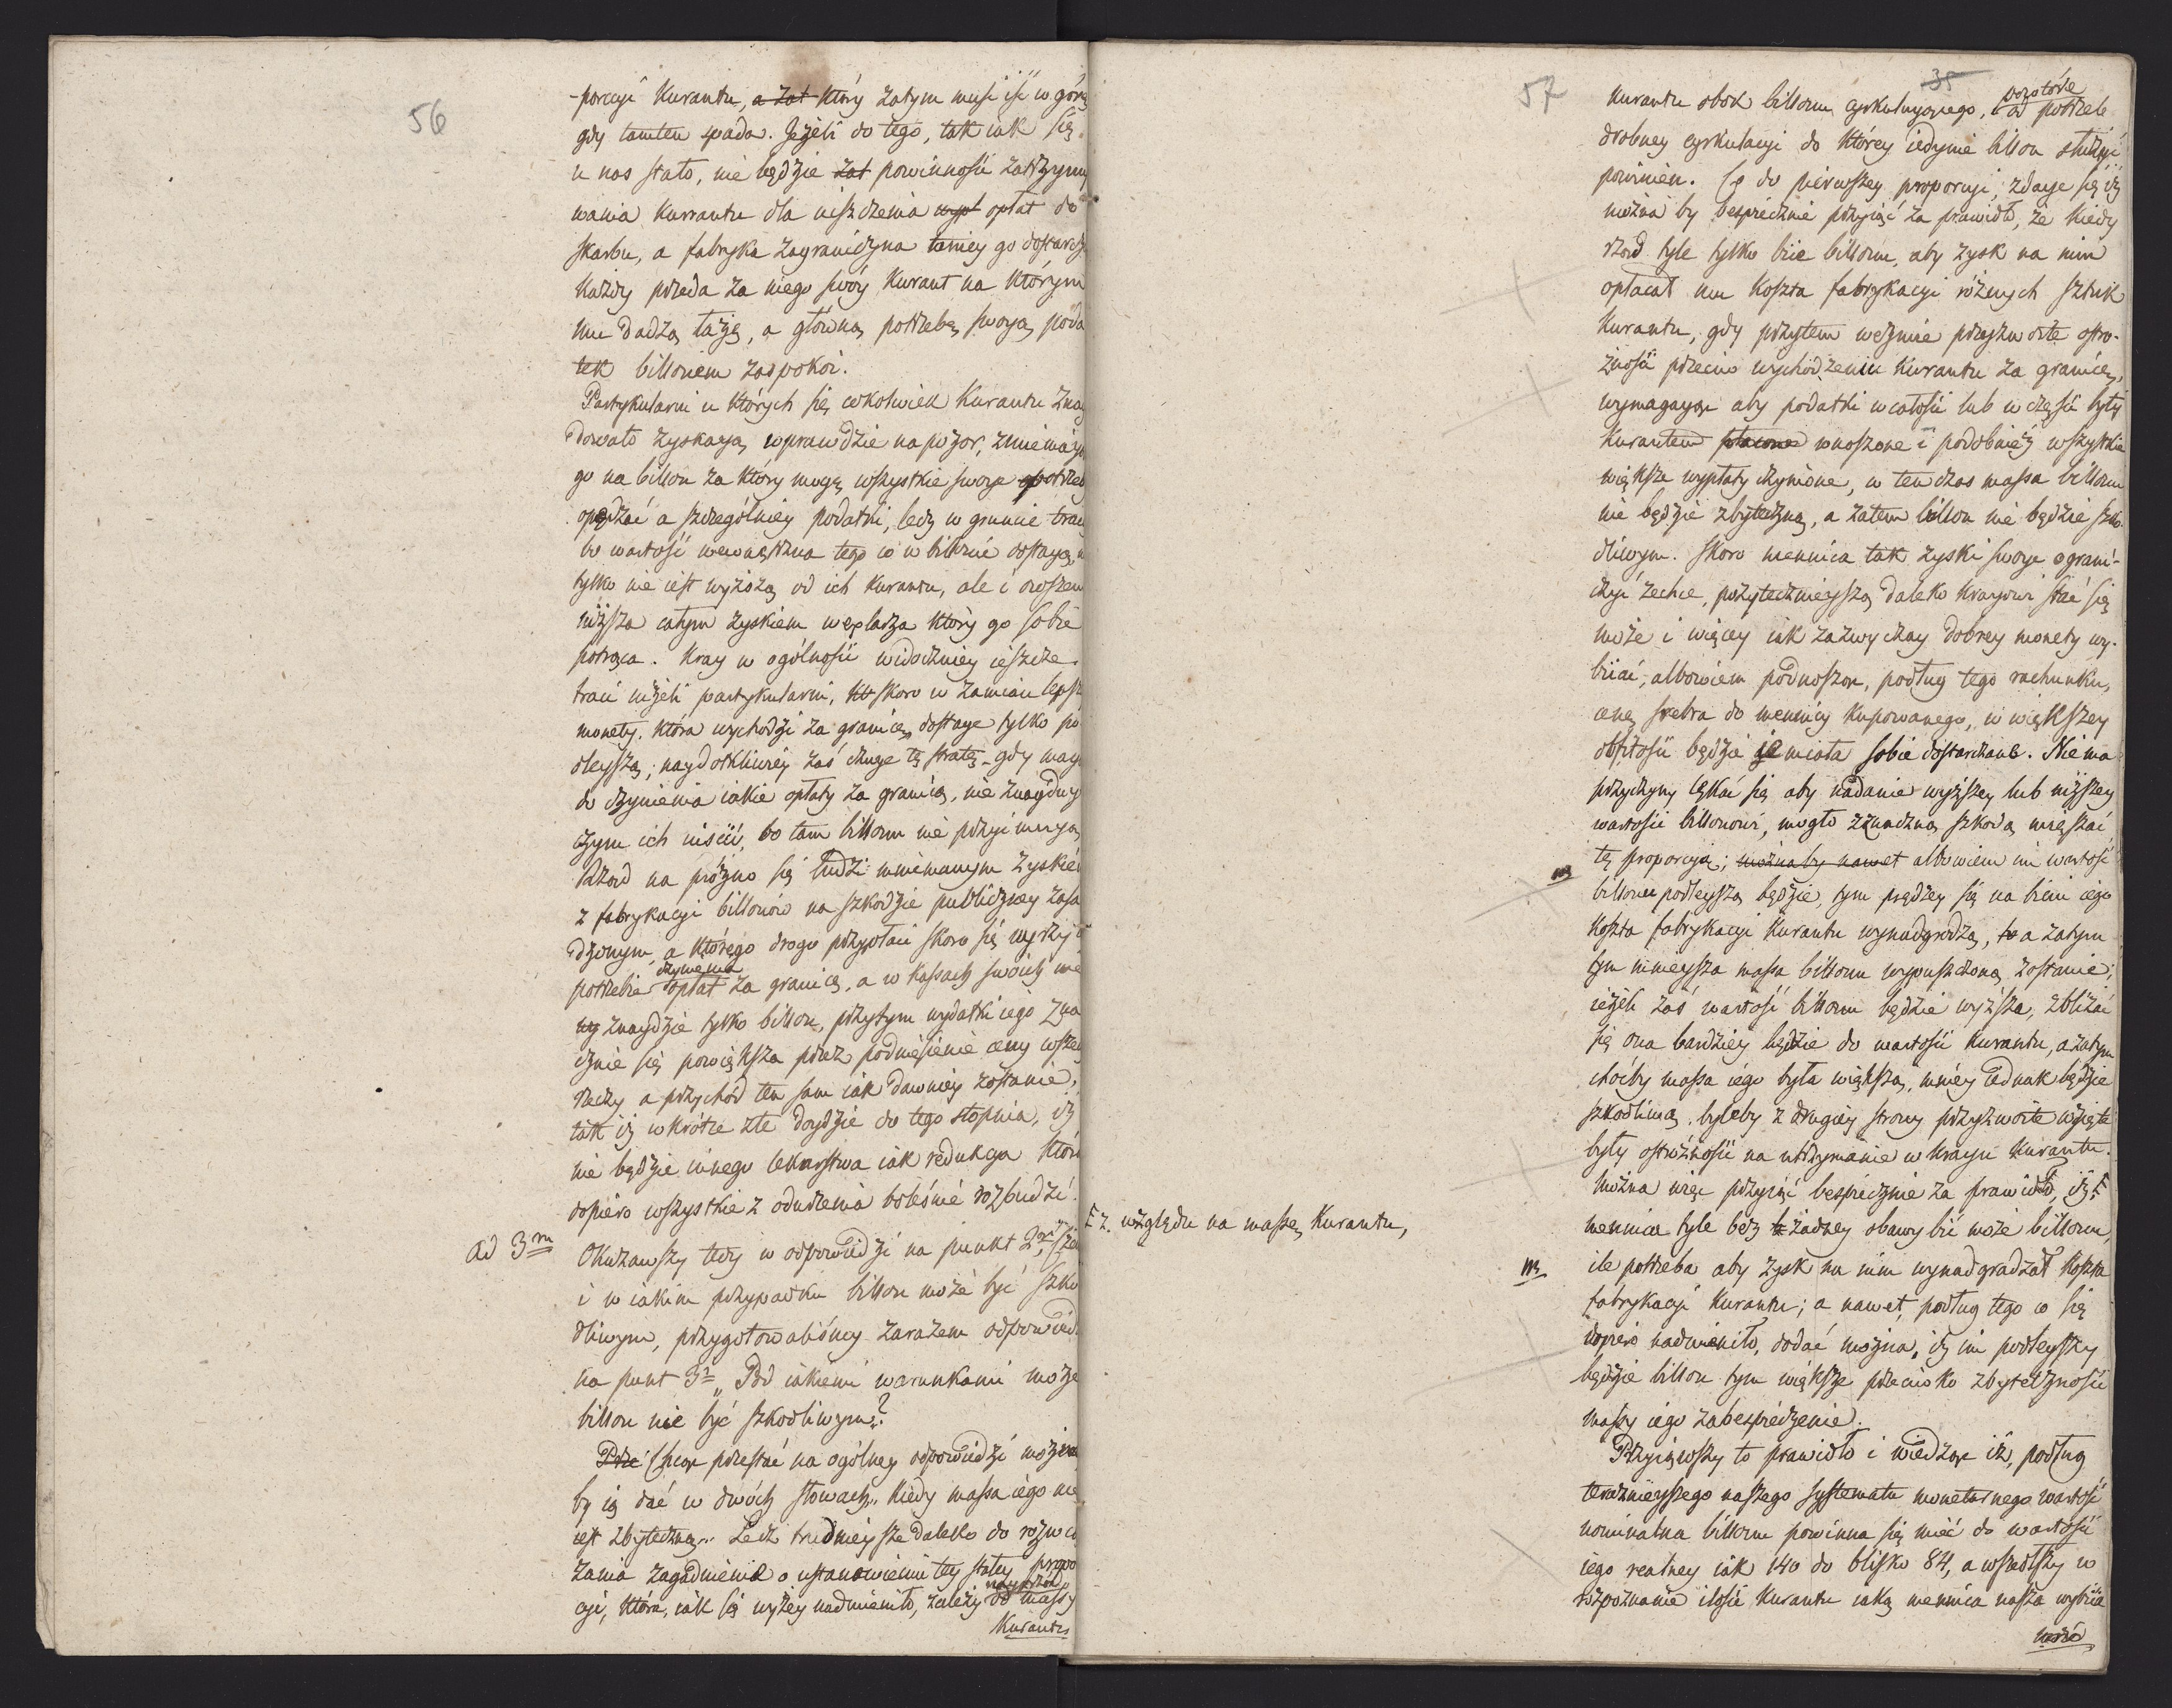 56
-porcyi Kurantu, a zat który zatym musi iść w górę
gdy tamten spada. Jeżeli do tego, tak iak się
u nas stało, nie będzie zat powinności zatrzymy
wania Kurrantu dla uiszczenia wypł opłat do
skarbu, a fabryka zagraniczna taniey go dostarczy
każdy przeda za niego swóy Kurant na którym
mu dadzą tażę, a główną potrzebę swoją poda
tek billonem zaspokoi.
Partykularni u których się cokolwiek Kurantu znay
dowało zyskają wprawdzie na pozor, zmieniając
go na billon za który mogą wszystkie swoje potrzeby
opędzać a szczególniey podatki, lecz w gruncie tracą
bo wartość wewnętrzna tego co w billonie dostają, n
tylko nie iest wyższą od ich Kurantu, ale i owszem
niższa całym zyskiem wexlarza który go sobie
potrąca. Kray w ogólności widoczniey ieszcze
traci niżeli partykularni, skoro w zamian lepszey
monety, która wychodzi za granicę dostaje tylko po
dleyszą; naydotkliwiey zaś czuje tę stratę gdy maj
do czynienia iakie opłaty za granicą, nie znayduje
czym ich uiścić, bo tam billonu nie przyimują
Rząd na próżno się łudzi mniemanym zyskiem
z fabrykacyi billonów na szkodzie publiczney zasa
dzonym, a którego drogo przypłaci skoro się wyrży w
czynienia
potrzebie opłat za granicą, a w kassach swoich nie
znaydzie tylko billon, przytym wydatki iego zna
cznie się powiększa przez podniesienie ceny wszey
rzeczy a przychód ten sam iak dawniey zostanie,
tak iż wkrótce złe doydzie do tego stopnia, iż
nie będzie innego lekarstwa iak redukcya która
dopiero wszystkie z odurzenia boleśnie rozbudzi.
ad 3m Okazawszy tedy w odpowiedzi na punkt 2gi,
i w iakim przypadku billon może być szko
dliwym, przygotowaliśmy zarazem odpowiedź
na punt 3i „Pod iakiemi warunkami może
billon nie być szkodliwym?
Prze Chcąc przestać na ogólney odpowiedzi można
by ią dać w dwóch słowach „kiedy massa iego nie
iest zbyteczną„ Lecz trudnieysze daleko do rozwią
zania zagadnienie o ustanowieniu tey stałey propo
nayprzód
cyi, która, iak się wyżey nadmieniło, zależy od massy
Kurantu
57
35
powtóre
Kurantu obok billonu cyrkulującego, od potrzeb
drobney cyrkulacyi do którey iedynie billon służyć
powinien. Co do pierwszey proporcyi, zdaje się iż
można by bespiecznie przyiąć za prawidło, że kiedy
rząd tyle tylko bije billonu, aby zysk na nim
opłacał mu koszta fabrykacyi różnych sztuk
Kurantu, gdy przytem weźmie przyzwoite ostro-
żności przeciw wychodzeniu kurantu za granicę,
wymagając aby podatki w całości lub w części były
Kurantem płacone wnoszone i podobnież wszystkie
większe wypłaty czynione, w ten czas massa billonu
nie będzie zbyteczną, a zatem billon nie będzie szko
dliwym. Skoro mennica tak zyski swoje ograni-
czyć zechce, pożytecznieyszą daleko krajowi stać się
może i więcey iak zazwyczay dobrey monety wy-
biiać, albowiem podnosząc, podług tego rachunku,
cenę srebra do mennicy kupowanego, w większey
obfitości będzie je miała sobie dostarczane. Niema
przyczyny lękać się aby nadanie wyższey lub niższey
wartości billonowi, mogło znaczną szkodą mięszać
tę proporcyą; można by nawet albowiem im wartość
billonu podleyszą będzie, tym prędzey się na biciu iego
koszta fabrykacyi Kurantu wynadgrodzą, to a zatym
tym mnieysza massa billonu wypuszczoną zostanie;
ieżeli zaś wartość billonu będzie wyższa, zbliżać
się ona bardziey będzie do wartości Kurantu, a zatym
choćby massa iego była większą, mniey iednak będzie
szkodliwą, byleby z drugiey strony przyzwoite wzięte
były ostróżności na utrzymanie w kraju Kurantu.
Można więc przyiąć bespiecznie za prawidło, iż
Z. względu na massę Kurantu,
mennica tyle bez żadney obawy bić może billonu,
ile potrzeba aby zysk na nim wynadgradzał koszta
fabrykacyi Kurantu; a nawet, podług tego co się
dopiero nadmieniło, dodać można, iż im podleyszy
będzie billon tym większe przeciwko zbyteczności
massy iego zabespieczenie.
Przyiąwszy to prawidło i wiedząc iż, podług
teraznieyszego naszego systematu monetarnego wartość
nominalna billonu powinna się mieć do wartości
iego realney iak 140 do blisko 84, a wszedłszy w
rozpoznanie ilości Kurantu iaką mennica nasza wybija